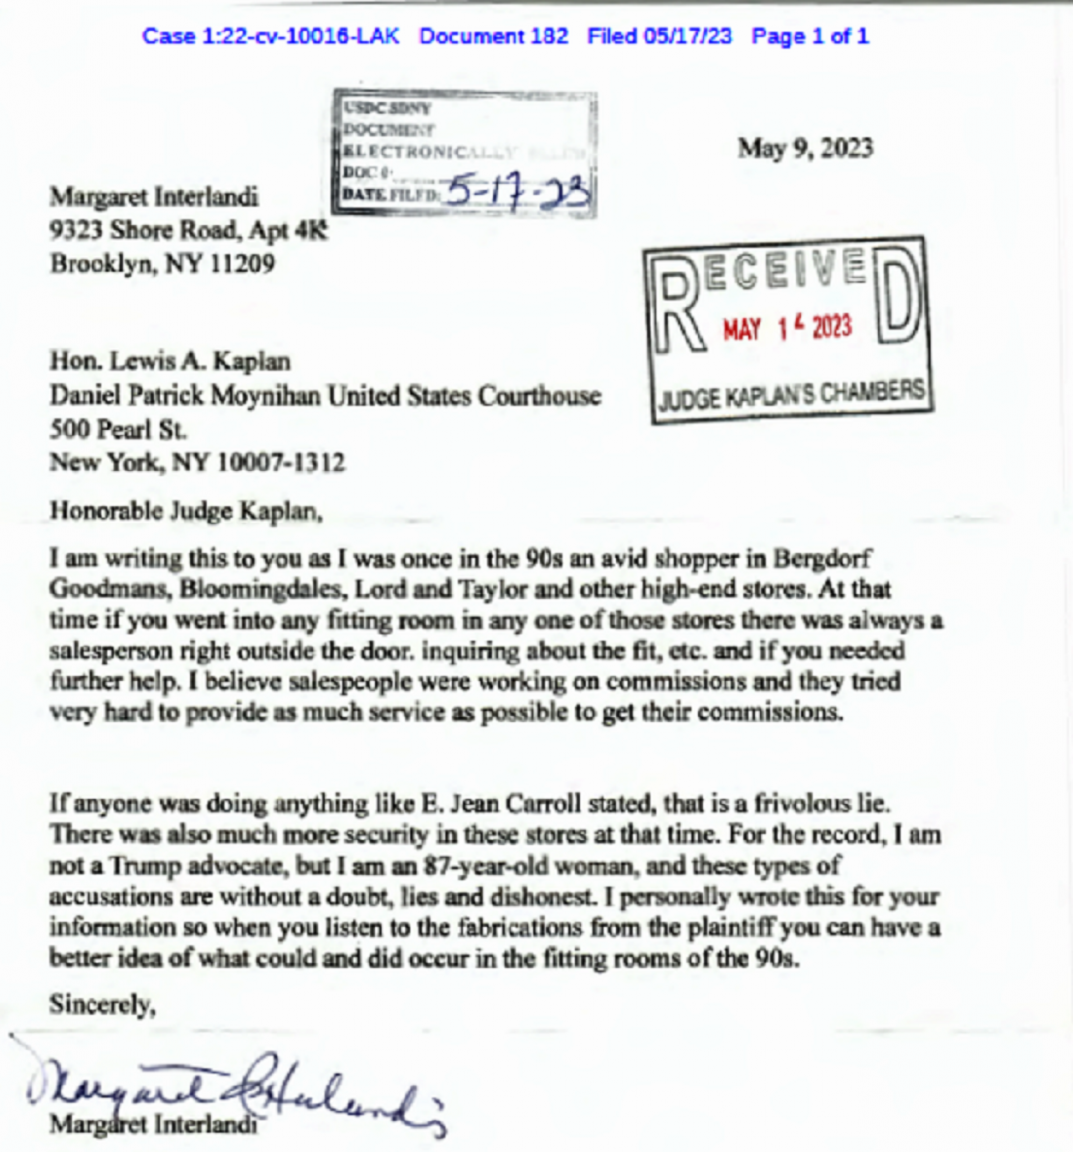 Case 1:22-cv-10016-LAK Document 182 Filed 05/17/23 Page 1 of 1
USDC SDNY
DOCUMENT
ELECTRONICALLY
DOC #:
DATE FILED: 5-17-23
May 9, 2023
Margaret Interlandi
9323 Shore Road, Apt 4K
Brooklyn, NY 11209
RECEIVED
MAY 14 2023
JUDGE KAPLAN'S CHAMBERS
Hon. Lewis A. Kaplan
Daniel Patrick Moynihan United States Courthouse
500 Pearl St.
New York, NY 10007-1312
Honorable Judge Kaplan,
I am writing this to you as I was once in the 90s an avid shopper in Bergdorf
Goodmans, Bloomingdales, Lord and Taylor and other high-end stores. At that
time if you went into any fitting room in any one of those stores there was always a
salesperson right outside the door. inquiring about the fit, etc. and if you needed
further help. I believe salespeople were working on commissions and they tried
very hard to provide as much service as possible to get their commissions.
If anyone was doing anything like E. Jean Carroll stated, that is a frivolous lie.
There was also much more security in these stores at that time. For the record, I am
not a Trump advocate, but I am an 87-year-old woman, and these types of
accusations are without a doubt, lies and dishonest. I personally wrote this for your
information so when you listen to the fabrications from the plaintiff you can have a
better idea of what could and did occur in the fitting rooms of the 90s.
Sincerely,
Margaret Interlandi
Margaret Interlandi